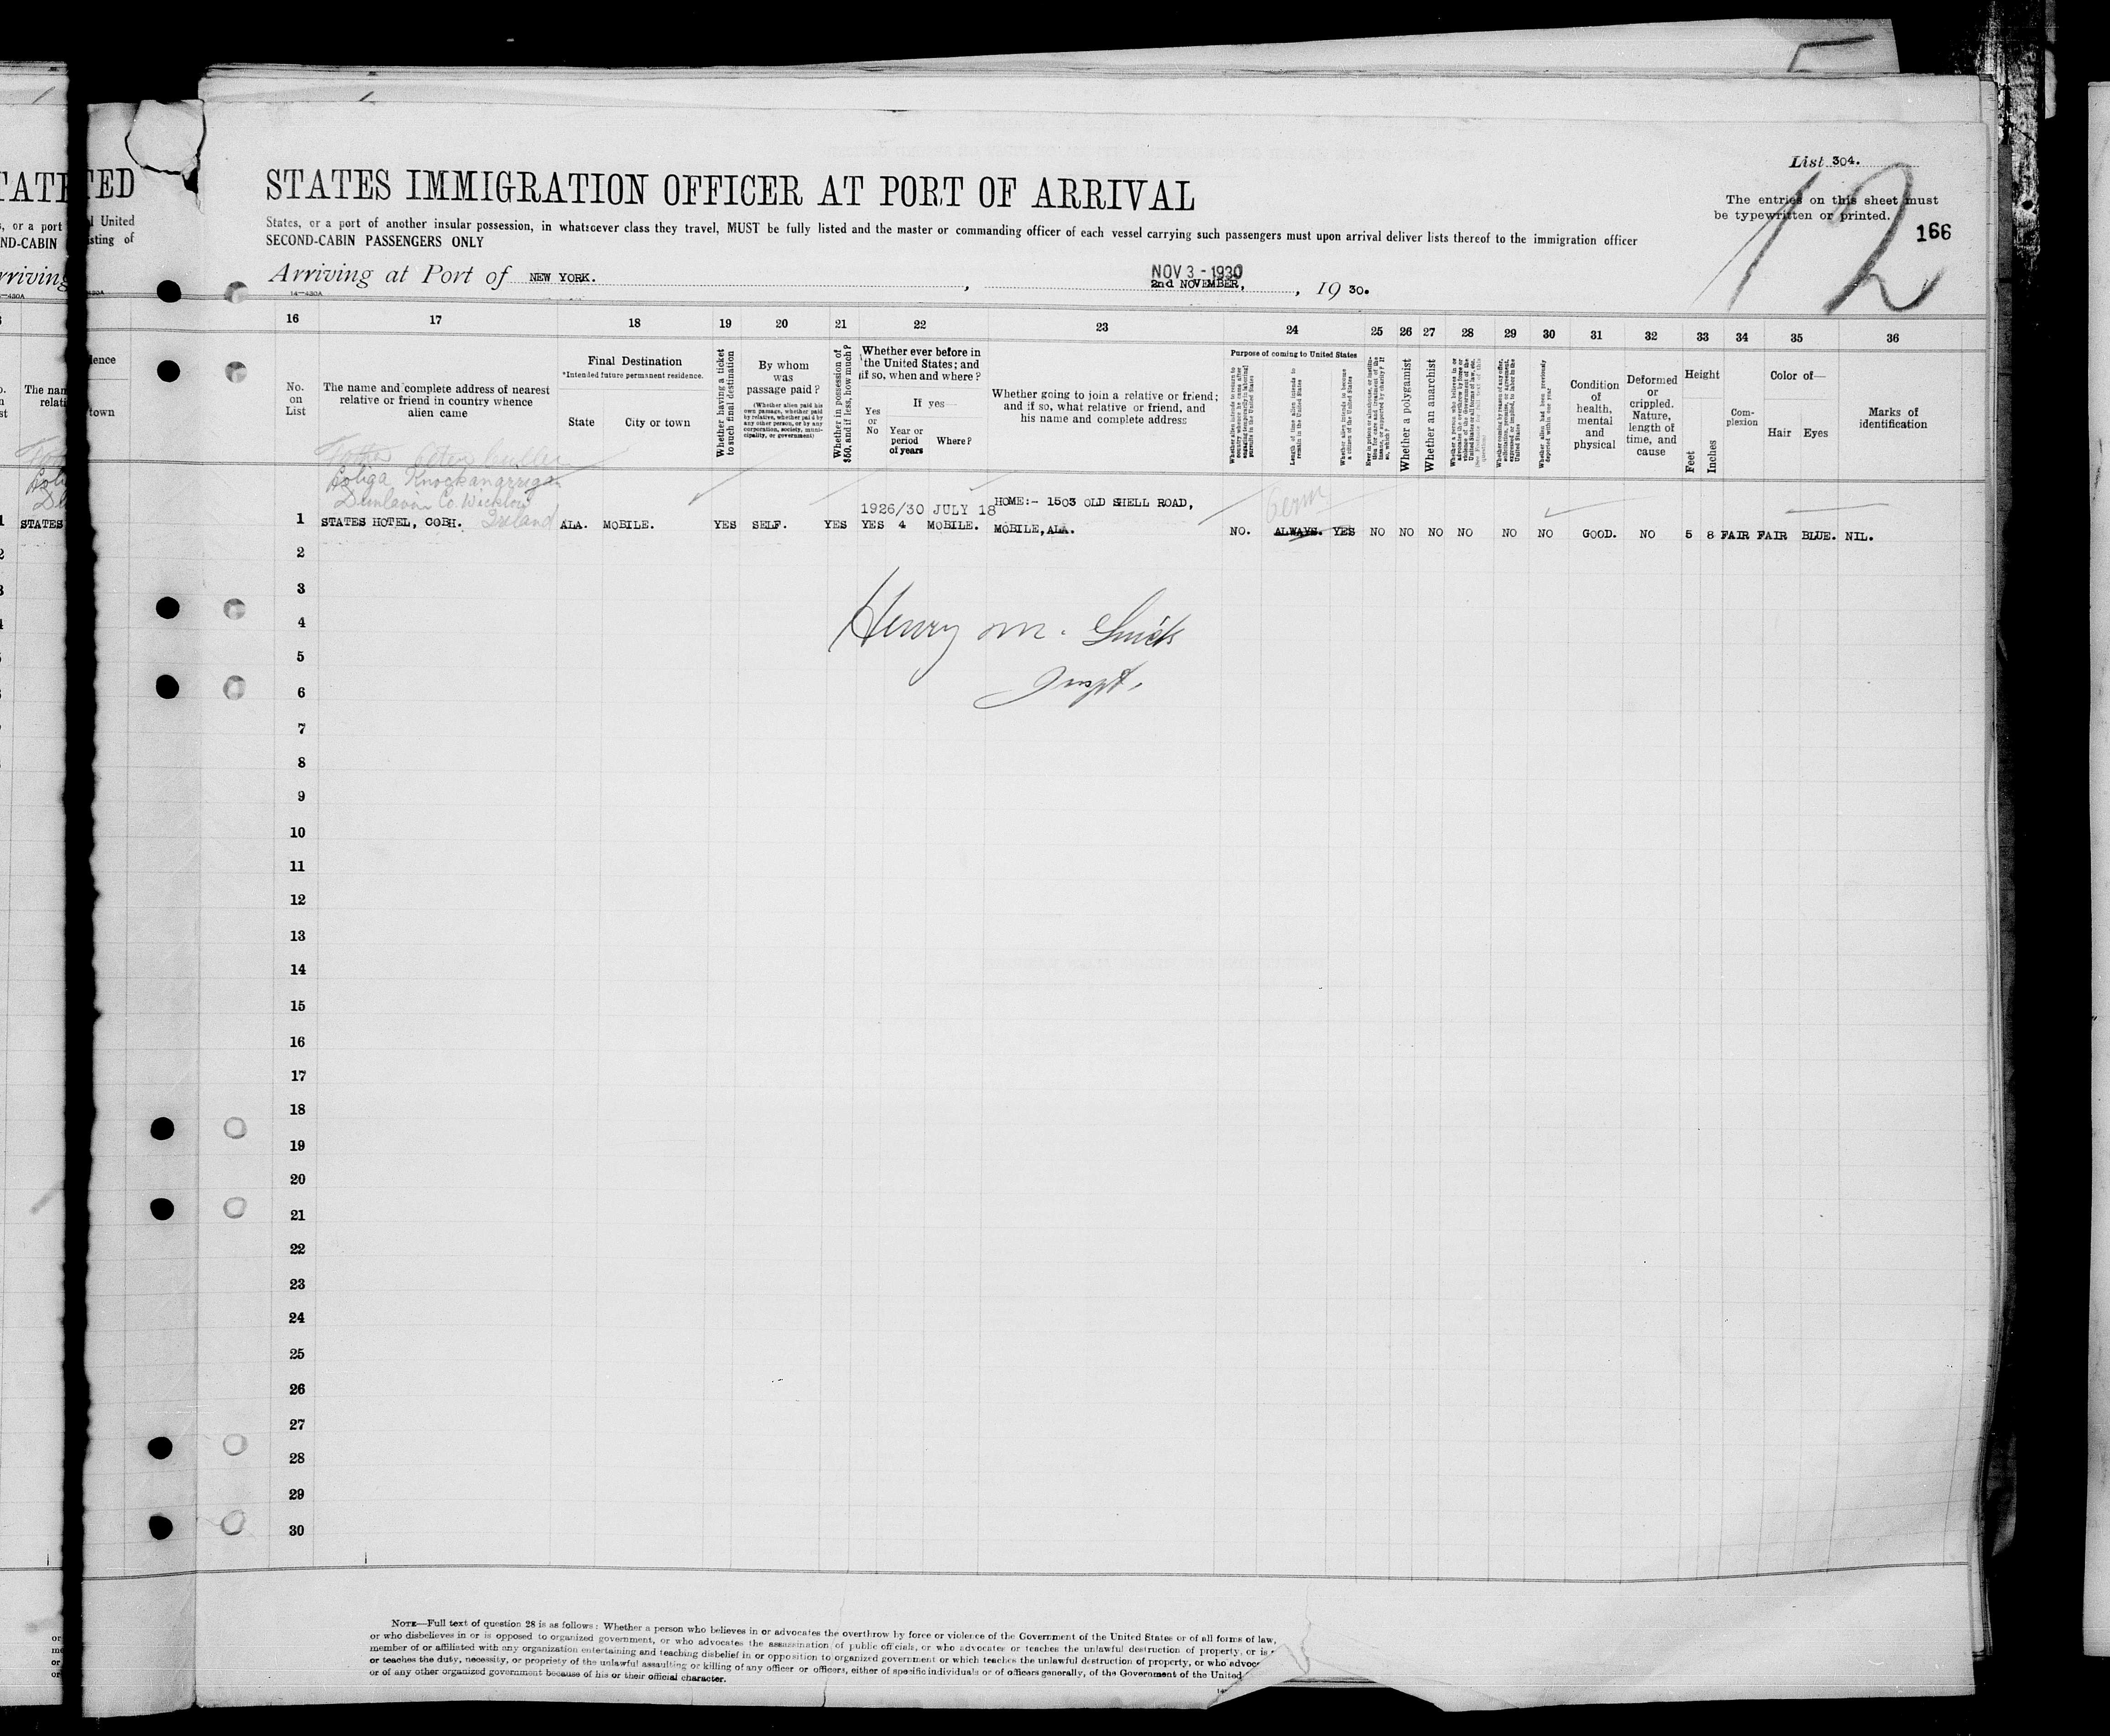 List 304.
STATES IMMIGRATION OFFICER AT PORT OF ARRIVAL
The entries on this sheet must
be typewritten or printed.
12
166
States, or a port of another insular possession, in whatsoever class they travel, MUST be fully listed and the master or commanding officer of each vessel carrying such passengers must upon arrival deliver lists thereof to the immigration officer
SECOND-CABIN PASSENGERS ONLY
NOV 3 - 1930
Arriving at Port of NEW YORK. , 2nd NOVEMBER, , 19 30.
14-430A
16 17 18 19 20 21 22 23 24 25 26 27 28 29 30 31 32 33 34 35 36
No. on List
The name and complete address of nearest
relative or friend in country whence
alien came
Final Destination
*Intended future permanent residence.
State City or town
Whether having a ticket
to such final destination
By whom
was
passage paid?
(Whether alien paid his
own passage, whether paid
by relative, whether paid by
any other person, or by any
corporation, society, muni-
cipality, or government)
Whether in possession of
$50, and if less, how much?
Whether ever before in
the United States; and
if so, when and where?
Yes
or
No
If yes—
Year or
period
of years
Where?
Whether going to join a relative or friend;
and if so, what relative or friend, and
his name and complete address
Purpose of coming to United States
Length of time alien intends to
remain in the United States
Whether alien intends to become
a citizen of the United States
Whether a polygamist
Whether an anarchist
Whether alien had been previously
deported within one year
Condition
of
health,
mental
and
physical
Deformed
or
crippled.
Nature,
length of
time, and
cause
Height
Feet
Inches
Com-
plexion
Color of—
Hair Eyes
Marks of
identification
Father Peter
Knockanarrigan
Dunlavin Co. Wicklow
Ireland
1926/30 JULY 18 HOME:- 1503 OLD SHELL ROAD,
1 STATES HOTEL, COBH. ALA. MOBILE. YES SELF. YES YES 4 MOBILE. MOBILE, ALA. NO. ALWAYS. YES NO NO NO NO NO NO GOOD. NO 5 8 FAIR FAIR BLUE. NIL.
2
3
4
Henry M.
5
6
Inspt.
7
8
9
10
11
12
13
14
15
16
17
18
19
20
21
22
23
24
25
26
27
28
29
30
NOTE—Full text of question 28 is as follows: Whether a person who believes in or advocates the overthrow by force or violence of the Government of the United States or of all forms of law,
or who disbelieves in or is opposed to organized government, or who advocates the assassination of public officials, or who advocates or teaches the unlawful destruction of property, or is
member of or affiliated with any organization entertaining and teaching disbelief in or opposition to organized government or which teaches the unlawful destruction of property, or who
or teaches the duty, necessity, or propriety of the unlawful assaulting or killing of any officer or officers, either of specific individuals or of officers generally, of the Government of the United
or of any other organized government because of his or their official character.